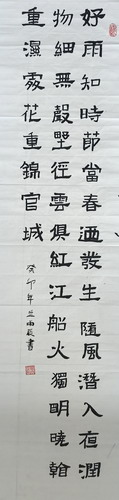 好雨知時節當春迺發生隨風潛入夜潤
物細無聲墅徑雲俱紅江船火獨明曉翰
重濕處花重錦官城
癸卯年雨書